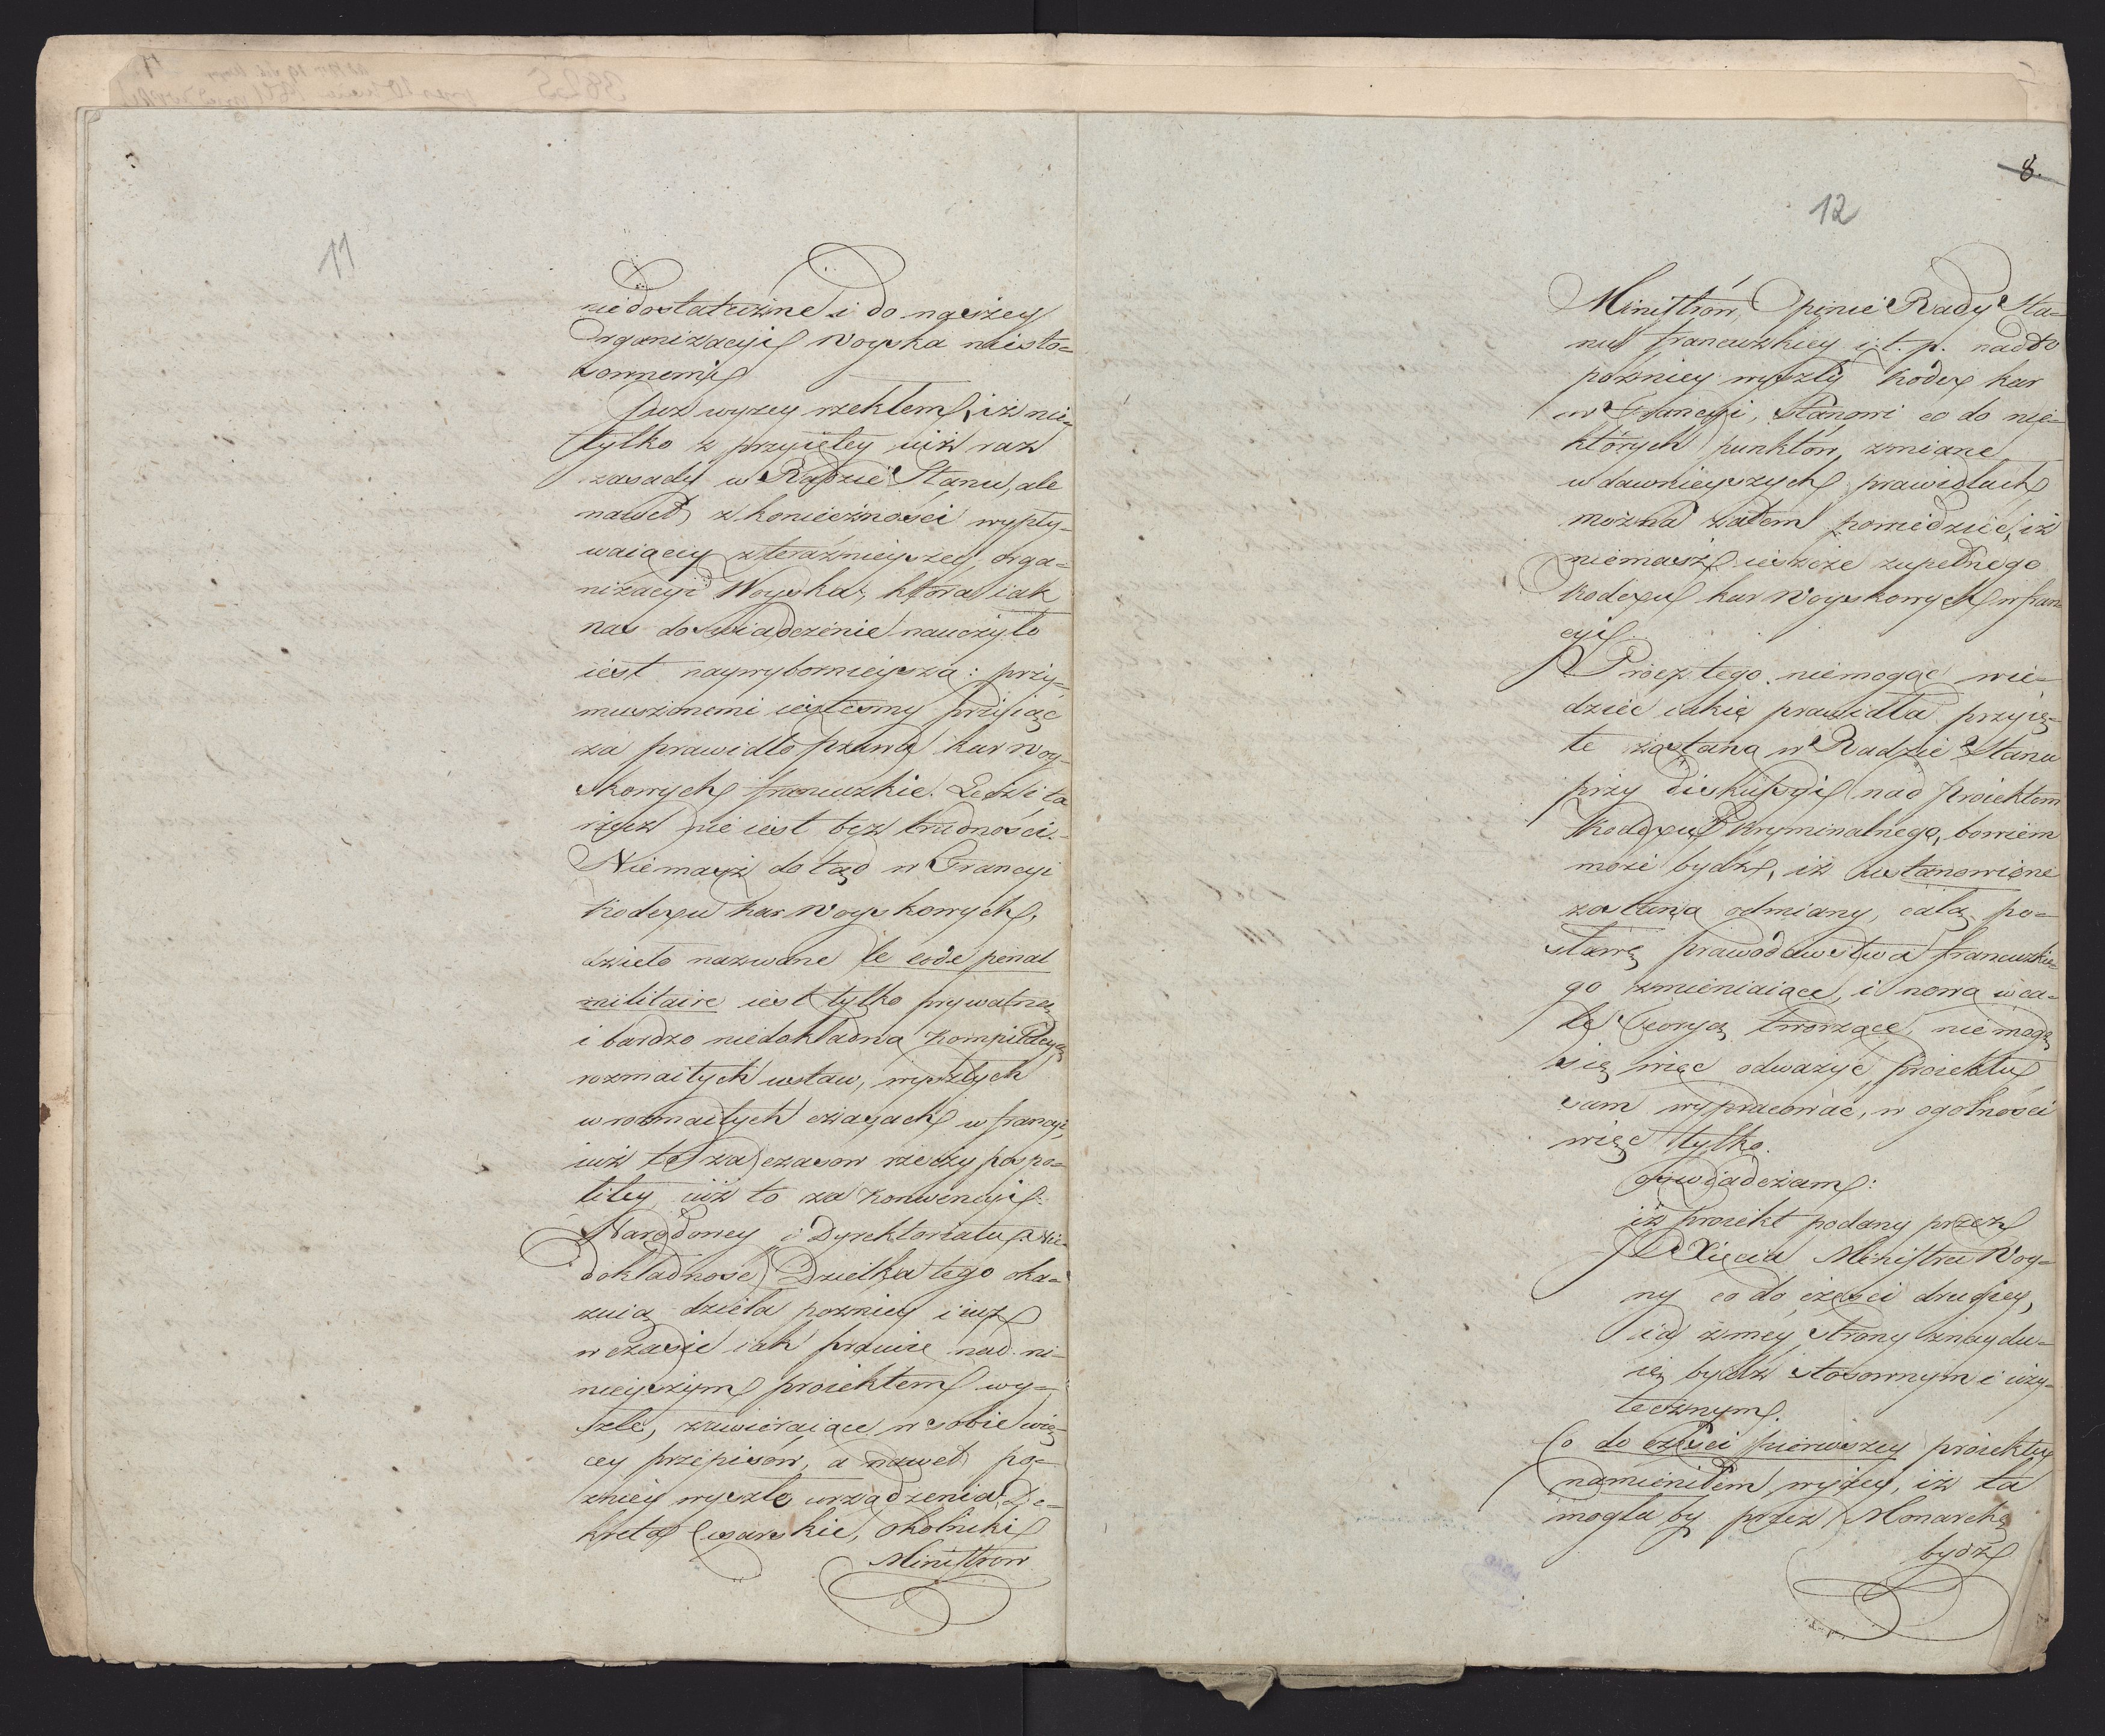 11
niedostateczne i do naszey
Organizacyi Woyska niesto=
sownemi
Już wyzey rzekłem, iż nie
tylko z przyiętey iuż raz
zasady w Radzie Stanu, ale
nawet z konieczności wypły-
waiącey z teraznieyszey, orga=
nizacyi Woyska, która iak
nas doswiadczenie nauczyło
iest naywybornieysza: przy=
muszonemi iestesmy przyiąć
za prawidło prawa kar woy-
skowych francuzkie. Lecz i ta
rzecz nie iest bez trudności.
Niemasz dotąd w Francyi
Kodexu kar woyskowych,
dzieło nazwane le code penal
militaire iest tylko prywatną
i bardzo niedokładną kompilacyą
rozmaitych ustaw, wyszłych
w rozmaitych czasach w francyi,
iuż to za czasow rzeczy pospo=
litey iuż to za Konwencyi
Narodowey i Dyrektoriatu. Nie-
dokładność Dziełka tego oka=
zuią dzieła pozniey i iuż
w czasie iak pracuię nad ni-
nieyszym proiektem wy-
szłe, zawieraiące w sobie wię-
cey przepisów, a nawet po=
zniey wyszłe urządzenia, De-
kreta Cesarskie, Okolniki
Ministrow
8.
12
Ministrów, Opinie Rady Sta=
nu francuzkiey i t. p. nadto
pozniey wyszły Kodex kar
w Francyi, stanowi co do nie=
których punktów, zmianę
w dawnieyszych prawidłach
można zatem powiedzieć, iż
niemasz ieszcze zupełnego
Kodexu kar Woyskowych w fran
cyi
Prócz tego niemogąc wie-
dzieć iakie prawidła przyię=
te zostaną w Radzie Stanu
przy diskussyi nad proiektem
Kodexu Kryminalnego, bowiem
może bydź, iż ustanowione
zostaną odmiany, całą po=
stawę prawodawstwa francuzkie=
go zmieniaiące, i nową wca=
le teoryą tworzące, nie mogę
się więc odważyć proiektu
sam wypracować, w ogolności
więc tylko.
oswiadczam:
iż proiekt podany przez
JO Xięcia Ministra Woy=
ny co do części drugiey,
ia z mey strony znaydu=
ię bydź stosownym i uży-
tecznym.
Co do części pierwszey proiektu
namieniłem wyżey, iż ta
mogła by przez Monarchę
bydź